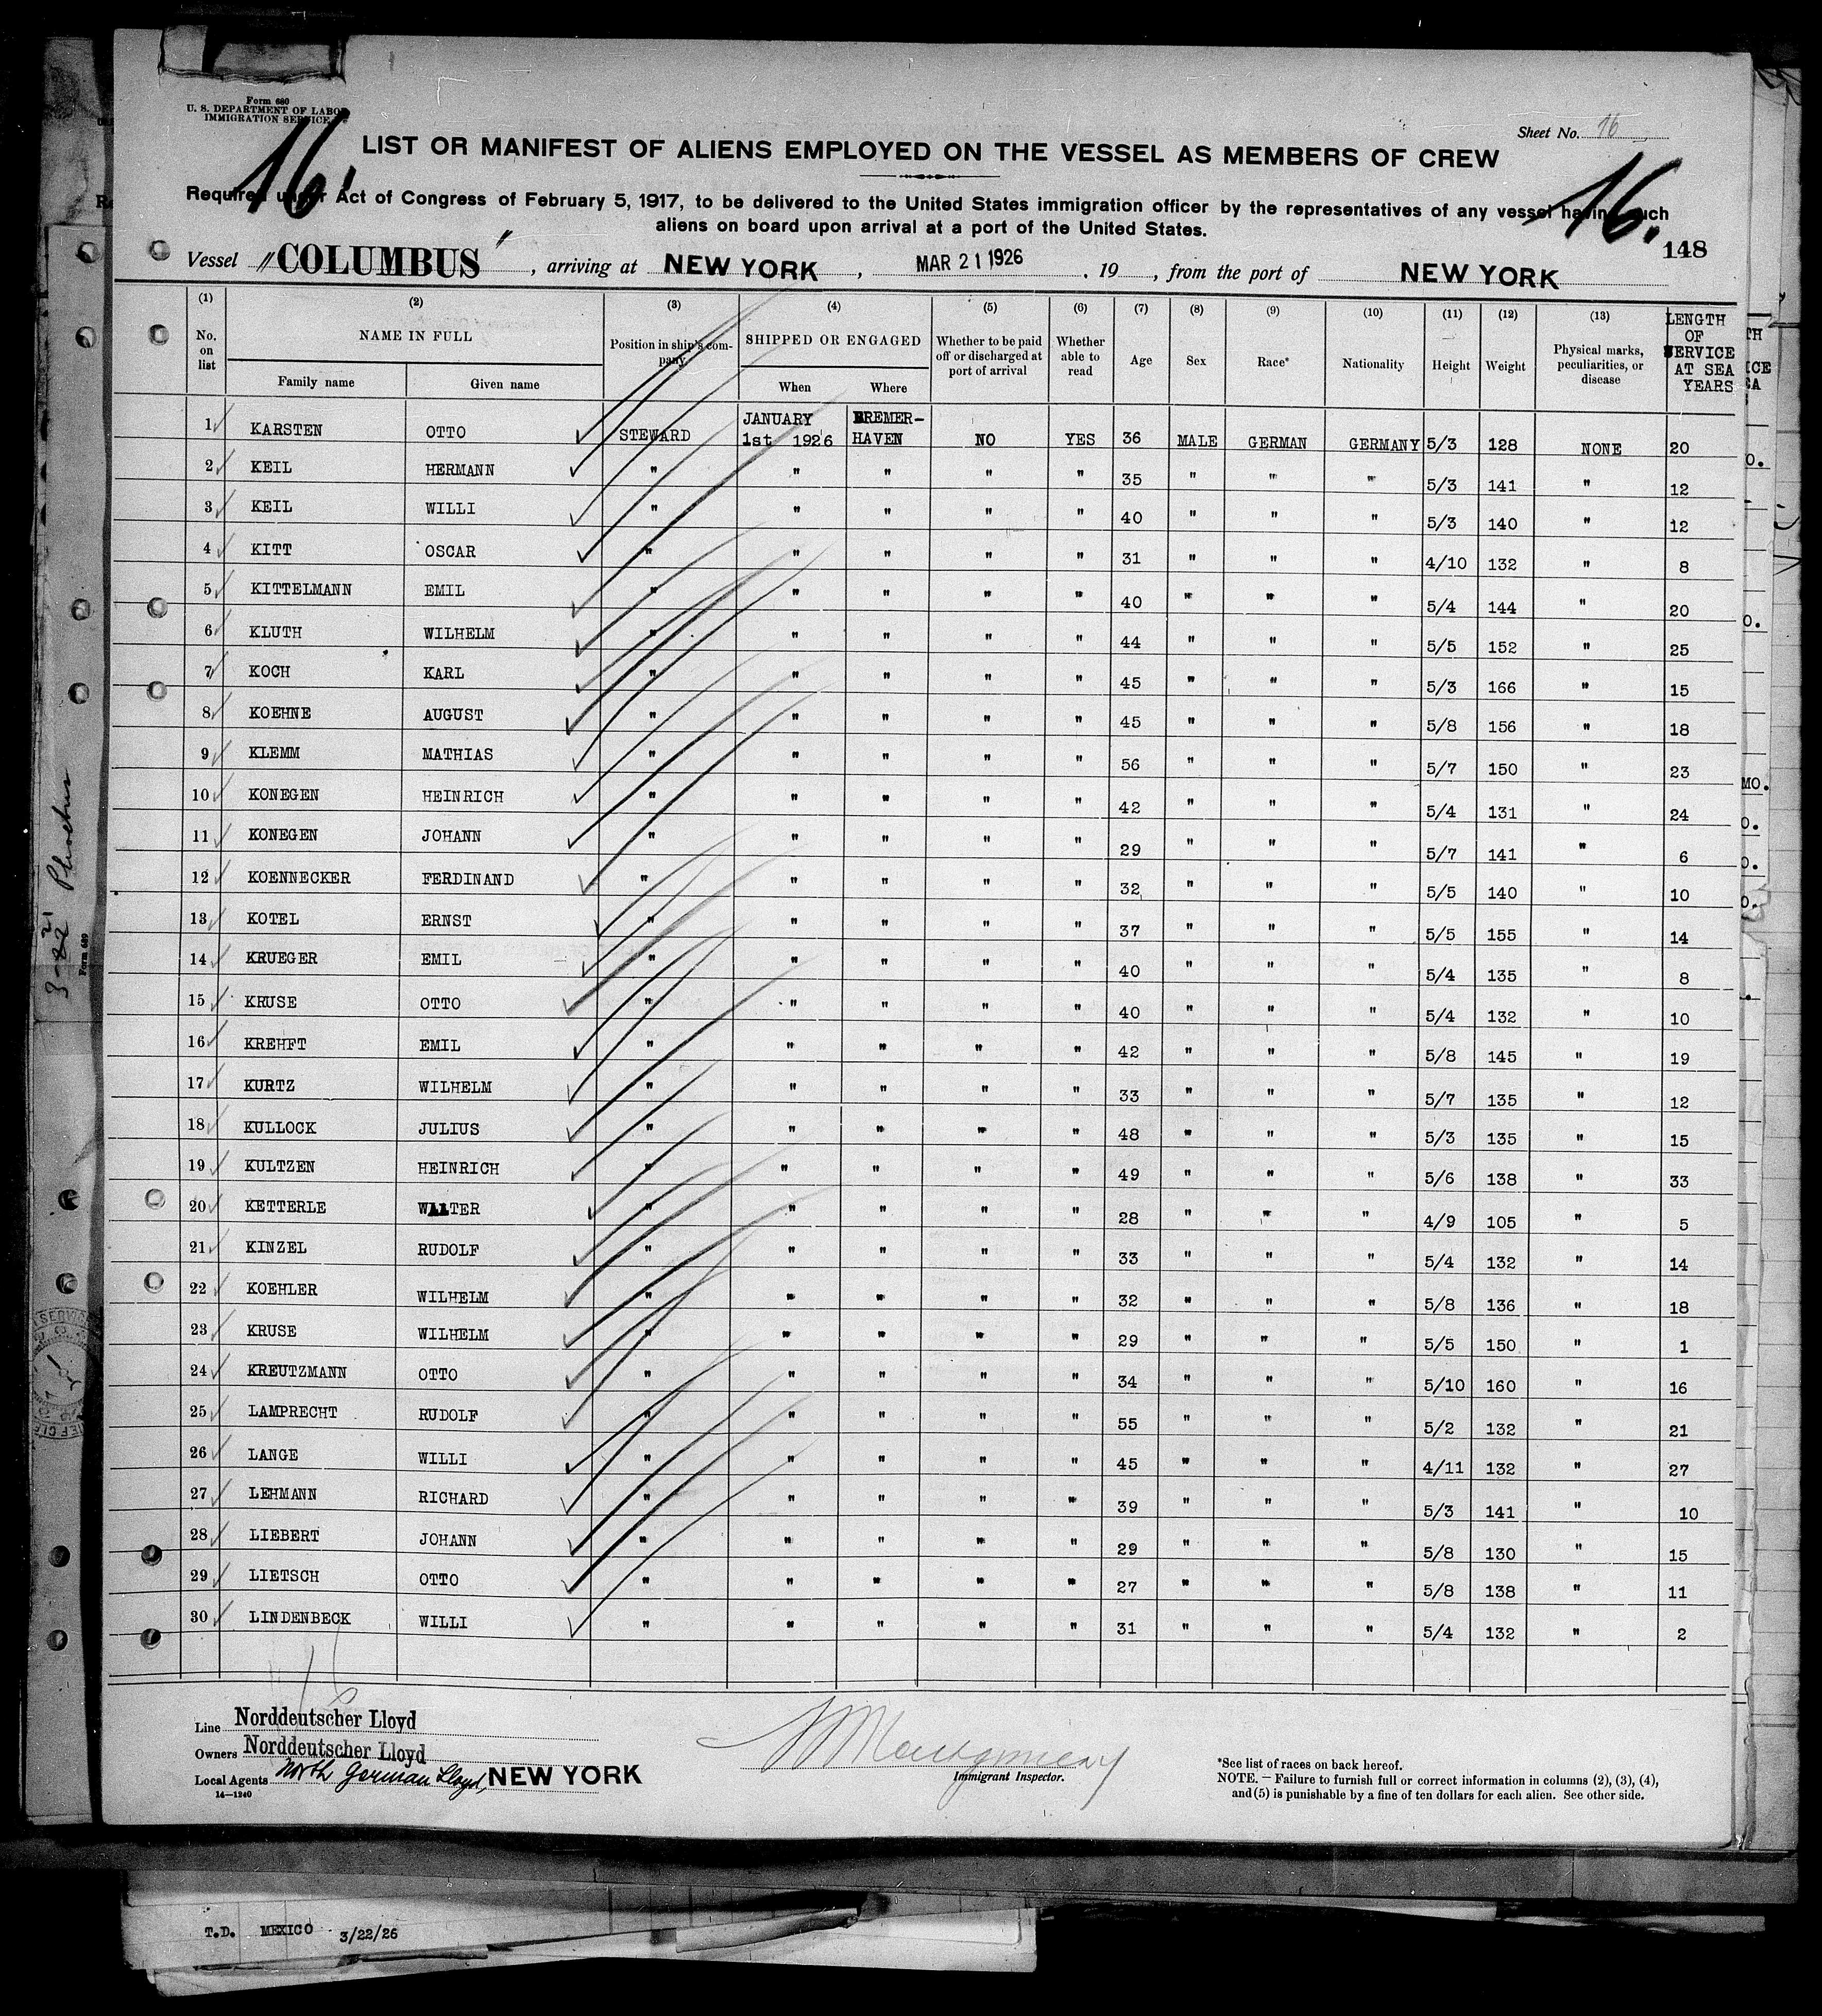 Form 680
U. S. DEPARTMENT OF LABOR
IMMIGRATION SERVICE
Sheet No. 16
16.
16.
LIST OR MANIFEST OF ALIENS EMPLOYED ON THE VESSEL AS MEMBERS OF CREW
Required under Act of Congress of February 5, 1917, to be delivered to the United States immigration officer by the representatives of any vessel having such
aliens on board upon arrival at a port of the United States.
148
Vessel "COLUMBUS", arriving at NEW YORK, MAR 21 1926, 19 , from the port of NEW YORK
(1) (2) (3) (4) (5) (6) (7) (8) (9) (10) (11) (12) (13)
No. on list NAME IN FULL Family name Given name Position in ship's company SHIPPED OR ENGAGED When Where Whether to be paid off or discharged at port of arrival Whether able to read Age Sex Race* Nationality Height Weight Physical marks, peculiarities, or disease LENGTH OF SERVICE AT SEA YEARS
1 KARSTEN OTTO STEWARD JANUARY 1st 1926 BREMER-HAVEN NO YES 36 MALE GERMAN GERMANY 5/3 128 NONE 20
2 KEIL HERMANN " " " " " 35 " " " 5/3 141 " 12
3 KEIL WILLI " " " " " 40 " " " 5/3 140 " 12
4 KITT OSCAR " " " " " 31 " " " 4/10 132 " 8
5 KITTELMANN EMIL " " " " " 40 " " " 5/4 144 " 20
6 KLUTH WILHELM " " " " " 44 " " " 5/5 152 " 25
7 KOCH KARL " " " " " 45 " " " 5/3 166 " 15
8 KOEHNE AUGUST " " " " " 45 " " " 5/8 156 " 18
9 KLEMM MATHIAS " " " " " 56 " " " 5/7 150 " 23
10 KONEGEN HEINRICH " " " " " 42 " " " 5/4 131 " 24
11 KONEGEN JOHANN " " " " " 29 " " " 5/7 141 " 6
12 KOENNECKER FERDINAND " " " " " 32 " " " 5/5 140 " 10
13 KOTEL ERNST " " " " " 37 " " " 5/5 155 " 14
14 KRUEGER EMIL " " " " " 40 " " " 5/4 135 " 8
15 KRUSE OTTO " " " " " 40 " " " 5/4 132 " 10
16 KREHFT EMIL " " " " " 42 " " " 5/8 145 " 19
17 KURTZ WILHELM " " " " " 33 " " " 5/7 135 " 12
18 KULLOCK JULIUS " " " " " 48 " " " 5/3 135 " 15
19 KULTZEN HEINRICH " " " " " 49 " " " 5/6 138 " 33
20 KETTERLE WALTER " " " " " 28 " " " 4/9 105 " 5
21 KINZEL RUDOLF " " " " " 33 " " " 5/4 132 " 14
22 KOEHLER WILHELM " " " " " 32 " " " 5/8 136 " 18
23 KRUSE WILHELM " " " " " 29 " " " 5/5 150 " 1
24 KREUTZMANN OTTO " " " " " 34 " " " 5/10 160 " 16
25 LAMPRECHT RUDOLF " " " " " 55 " " " 5/2 132 " 21
26 LANGE WILLI " " " " " 45 " " " 4/11 132 " 27
27 LEHMANN RICHARD " " " " " 39 " " " 5/3 141 " 10
28 LIEBERT JOHANN " " " " " 29 " " " 5/8 130 " 15
29 LIETSCH OTTO " " " " " 27 " " " 5/8 138 " 11
30 LINDENBECK WILLI " " " " " 31 " " " 5/4 132 " 2
Line Norddeutscher Lloyd
Owners Norddeutscher Lloyd
Local Agents North German Lloyd, NEW YORK
14—1240
Montgomery
Immigrant Inspector.
*See list of races on back hereof.
NOTE. — Failure to furnish full or correct information in columns (2), (3), (4),
and (5) is punishable by a fine of ten dollars for each alien. See other side.
Form 680
T.D. MEXICO 3/22/26